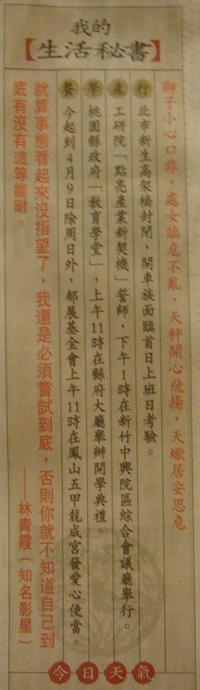 我的
【生活秘書】
獅子小心口非,處女臨危不亂,天秤開心飛揚,天蠍居安思危
行 北市新生高架橋封閉,開車族面臨首日上班日考驗。
產 工研院「點亮產業新契機」誓師,下午1時在新竹中興院區綜合會議廳舉行。
學 桃園縣政府「教育學堂」,上午11時在縣府大廳舉辦開學典禮。
餐 今起到4月9日除周日外,都展基金會上午11時在鳳山五甲龍成宮發愛心便當。
就算事態看起來沒指望了,我還是必須嘗試到底,否則你就不知道自己到
底有沒有這等能耐。
——林青霞(知名影星)
今日天氣